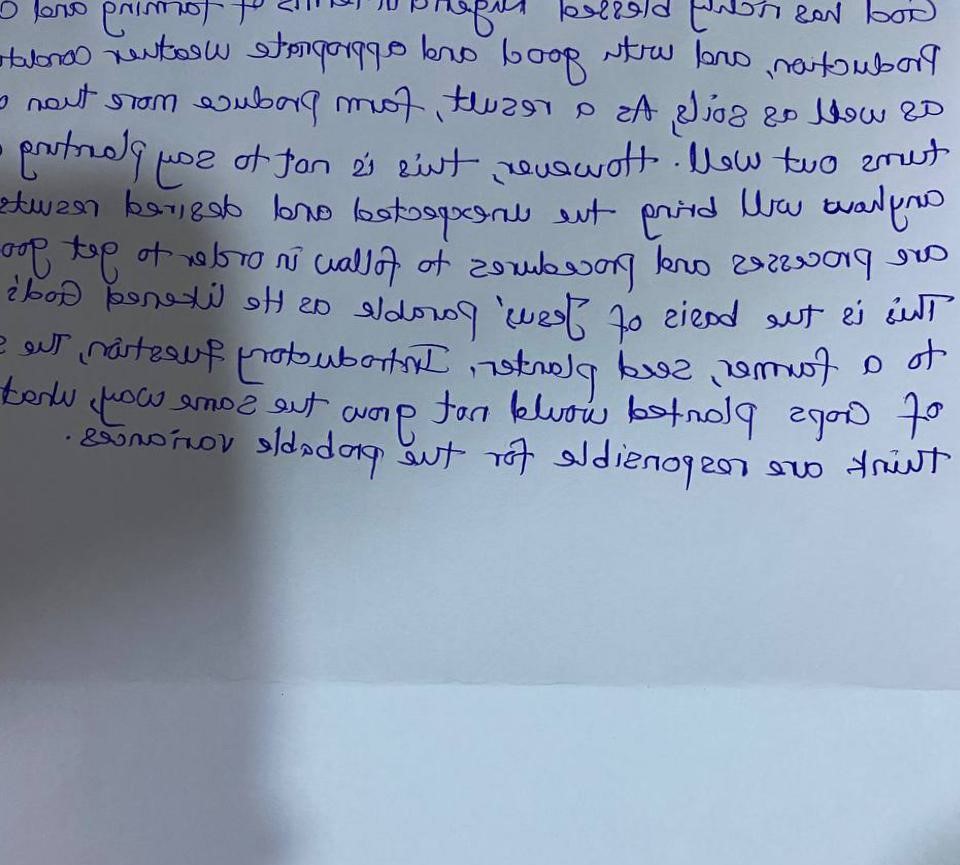 God has richly blessed Nigeria in terms of farming and
Production, and with good and appropriate weather condit
as well as soil, As a result, farm produce more than
turns out well. However, this is not to say planting
anyhow will bring the unexpected and desired results
are processes and procedures to follow in order to get goo
This is the basis of Jesus' parable as He likened God's
to a farmer, seed planter, Introductory Question, The s
of crops planted would not grow the same way, what
think are responsible for the probable variances.